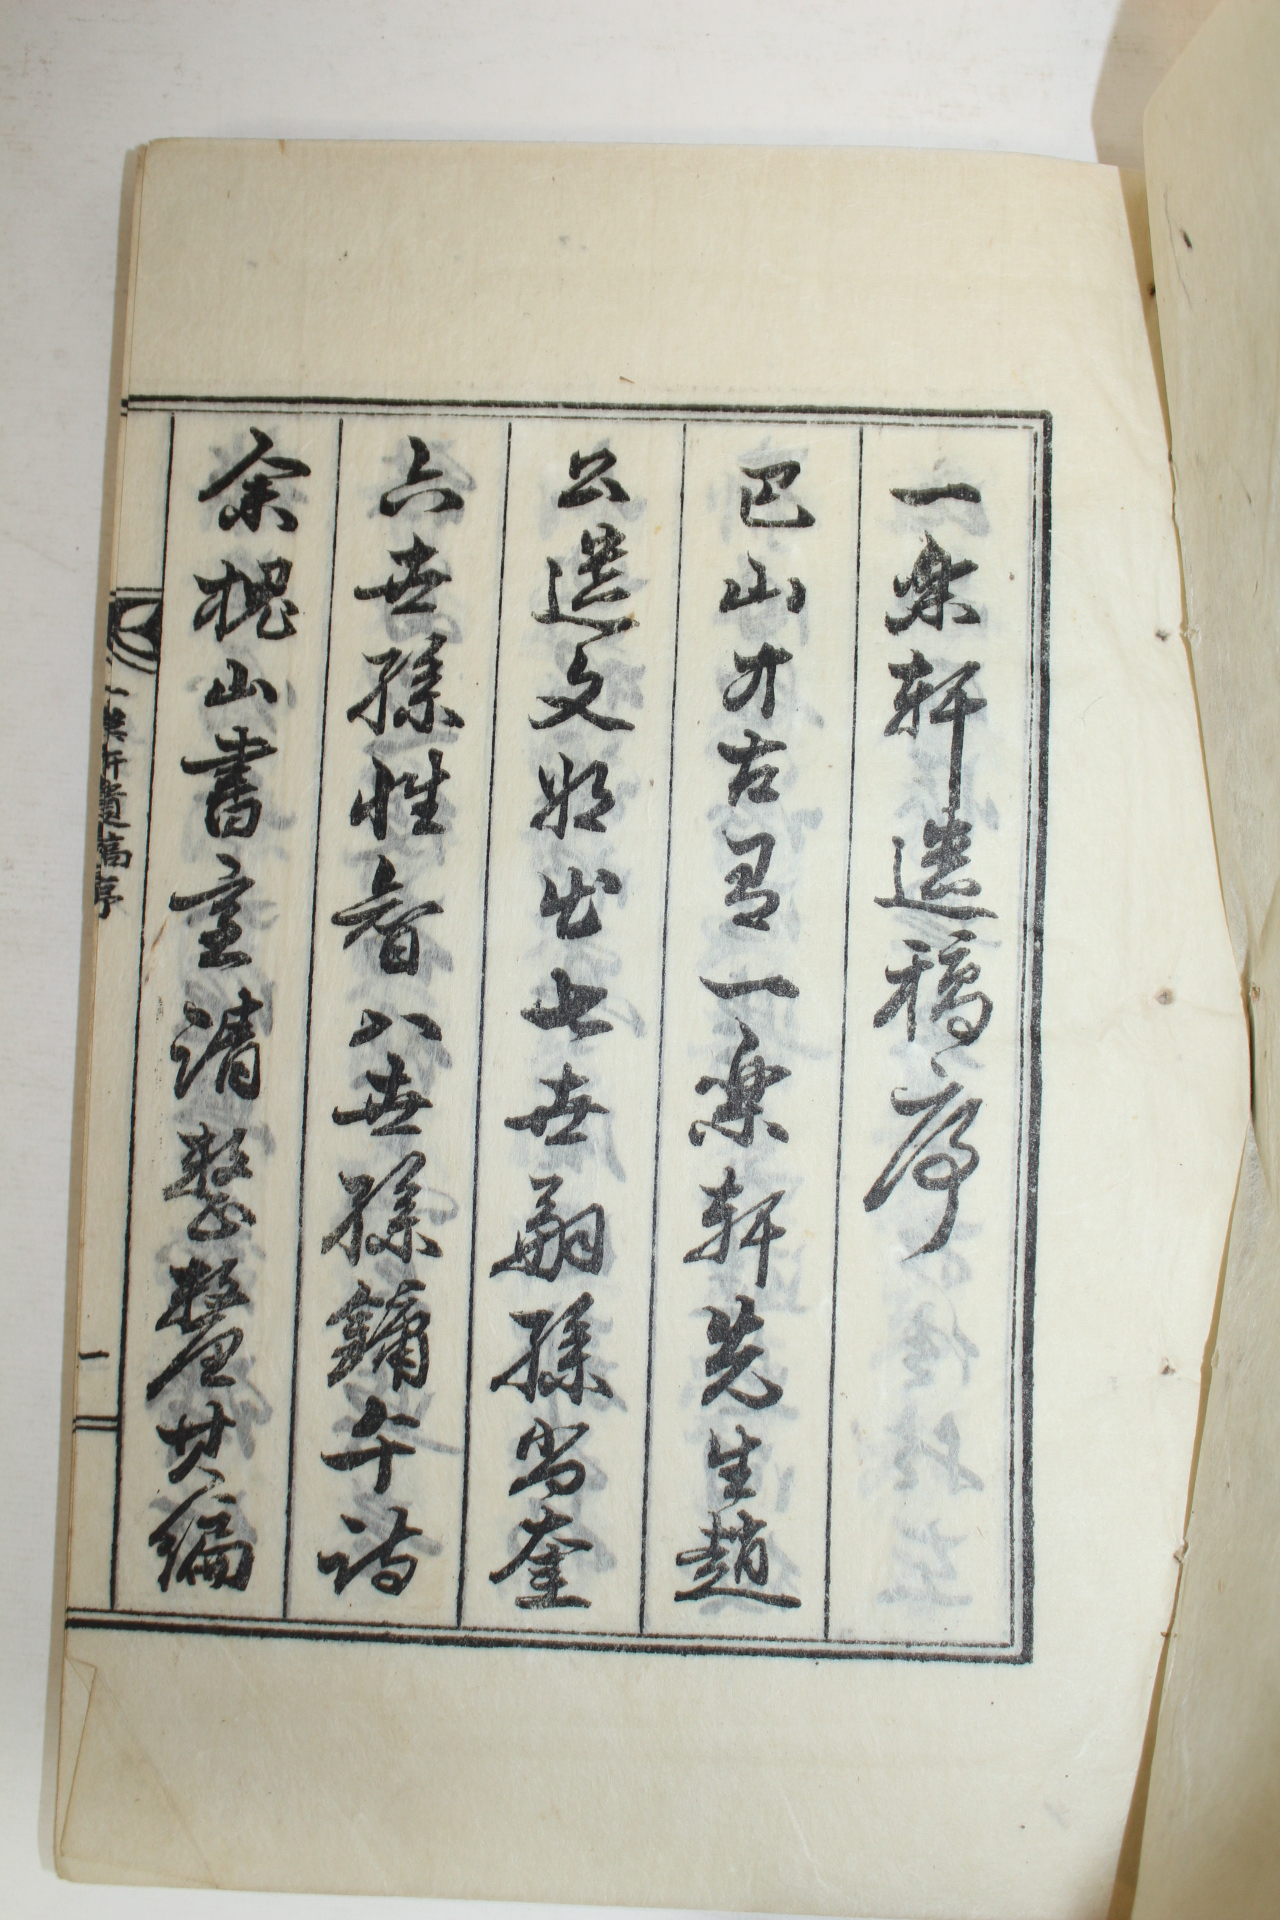 一楽軒遺稿序
巴山古有一楽軒先生趙
公遺文將出七世嗣孫尚奎
六世孫性智八世孫鏞午訪
余槐山書室請整釐其編
一樂軒遺稿序
一